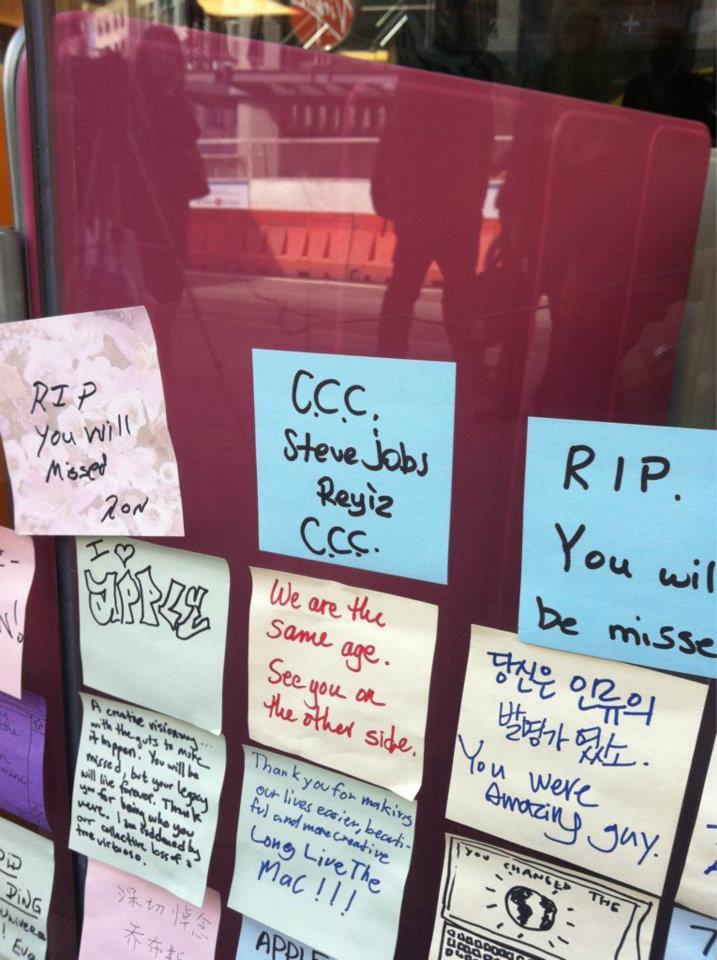 RIP
You Will
Missed
C.C.C.
Steve Jobs
Reyiz
C.C.C.
RIP.
You wil
be misse
I ♡
APPLE
We are the
same age.
See you on
the other side.
당신은 인류의
발명가 였소.
You were
Amazing guy.
A creative visionary...
with the guts to make
it happen. You will be
missed, but your legacy
will live forever. Thank
you for being who you
were. I am saddened by
our collective loss of a
true virtuoso.
Thank you for making
our lives easier, beauti-
ful and more creative
Long Live The
Mac!!!
YOU CHANGED THE
DING
深切悼念
乔布
APPLE